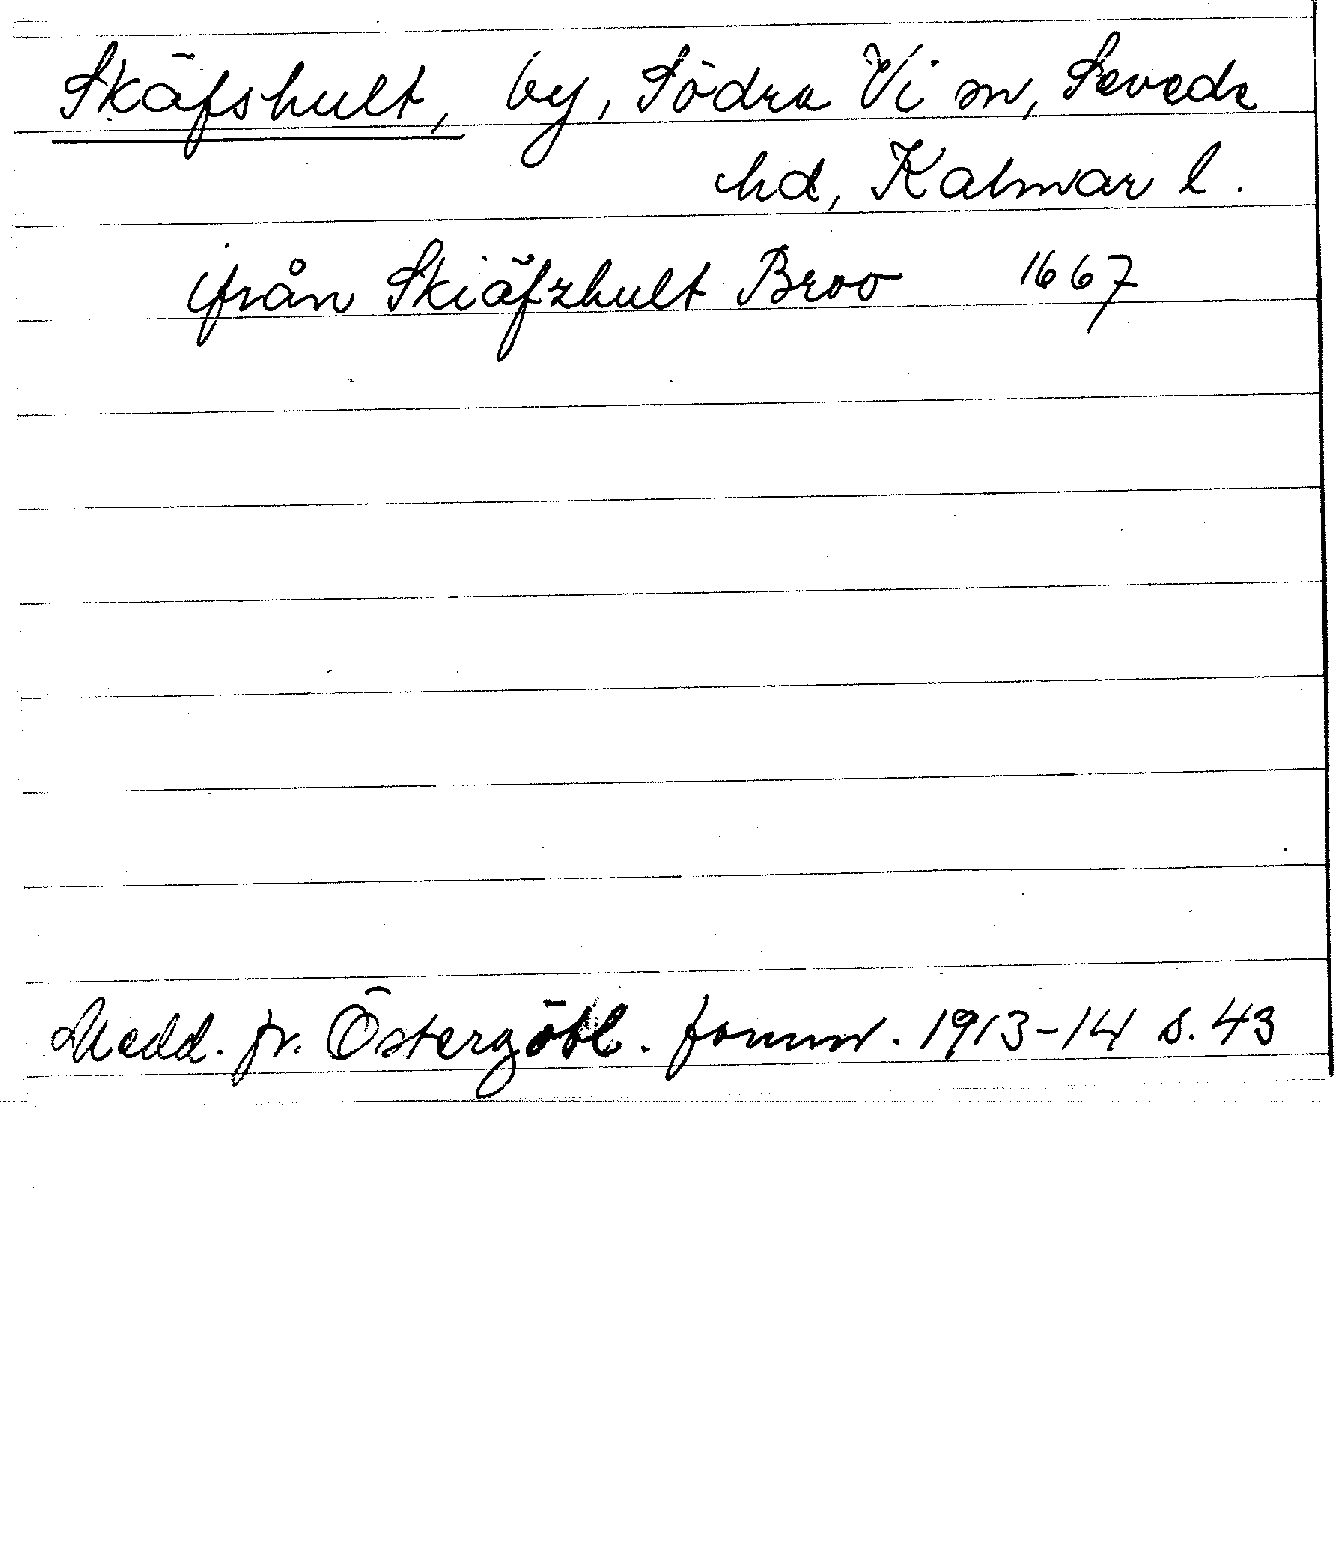 Skäfshult, by, Södra Vi sn, Sevede
hd, Kalmar l.
ifrån Skiäfzhult Broo 1667
Medd. fr. Östergötl. fornm. 1913-14 s. 43